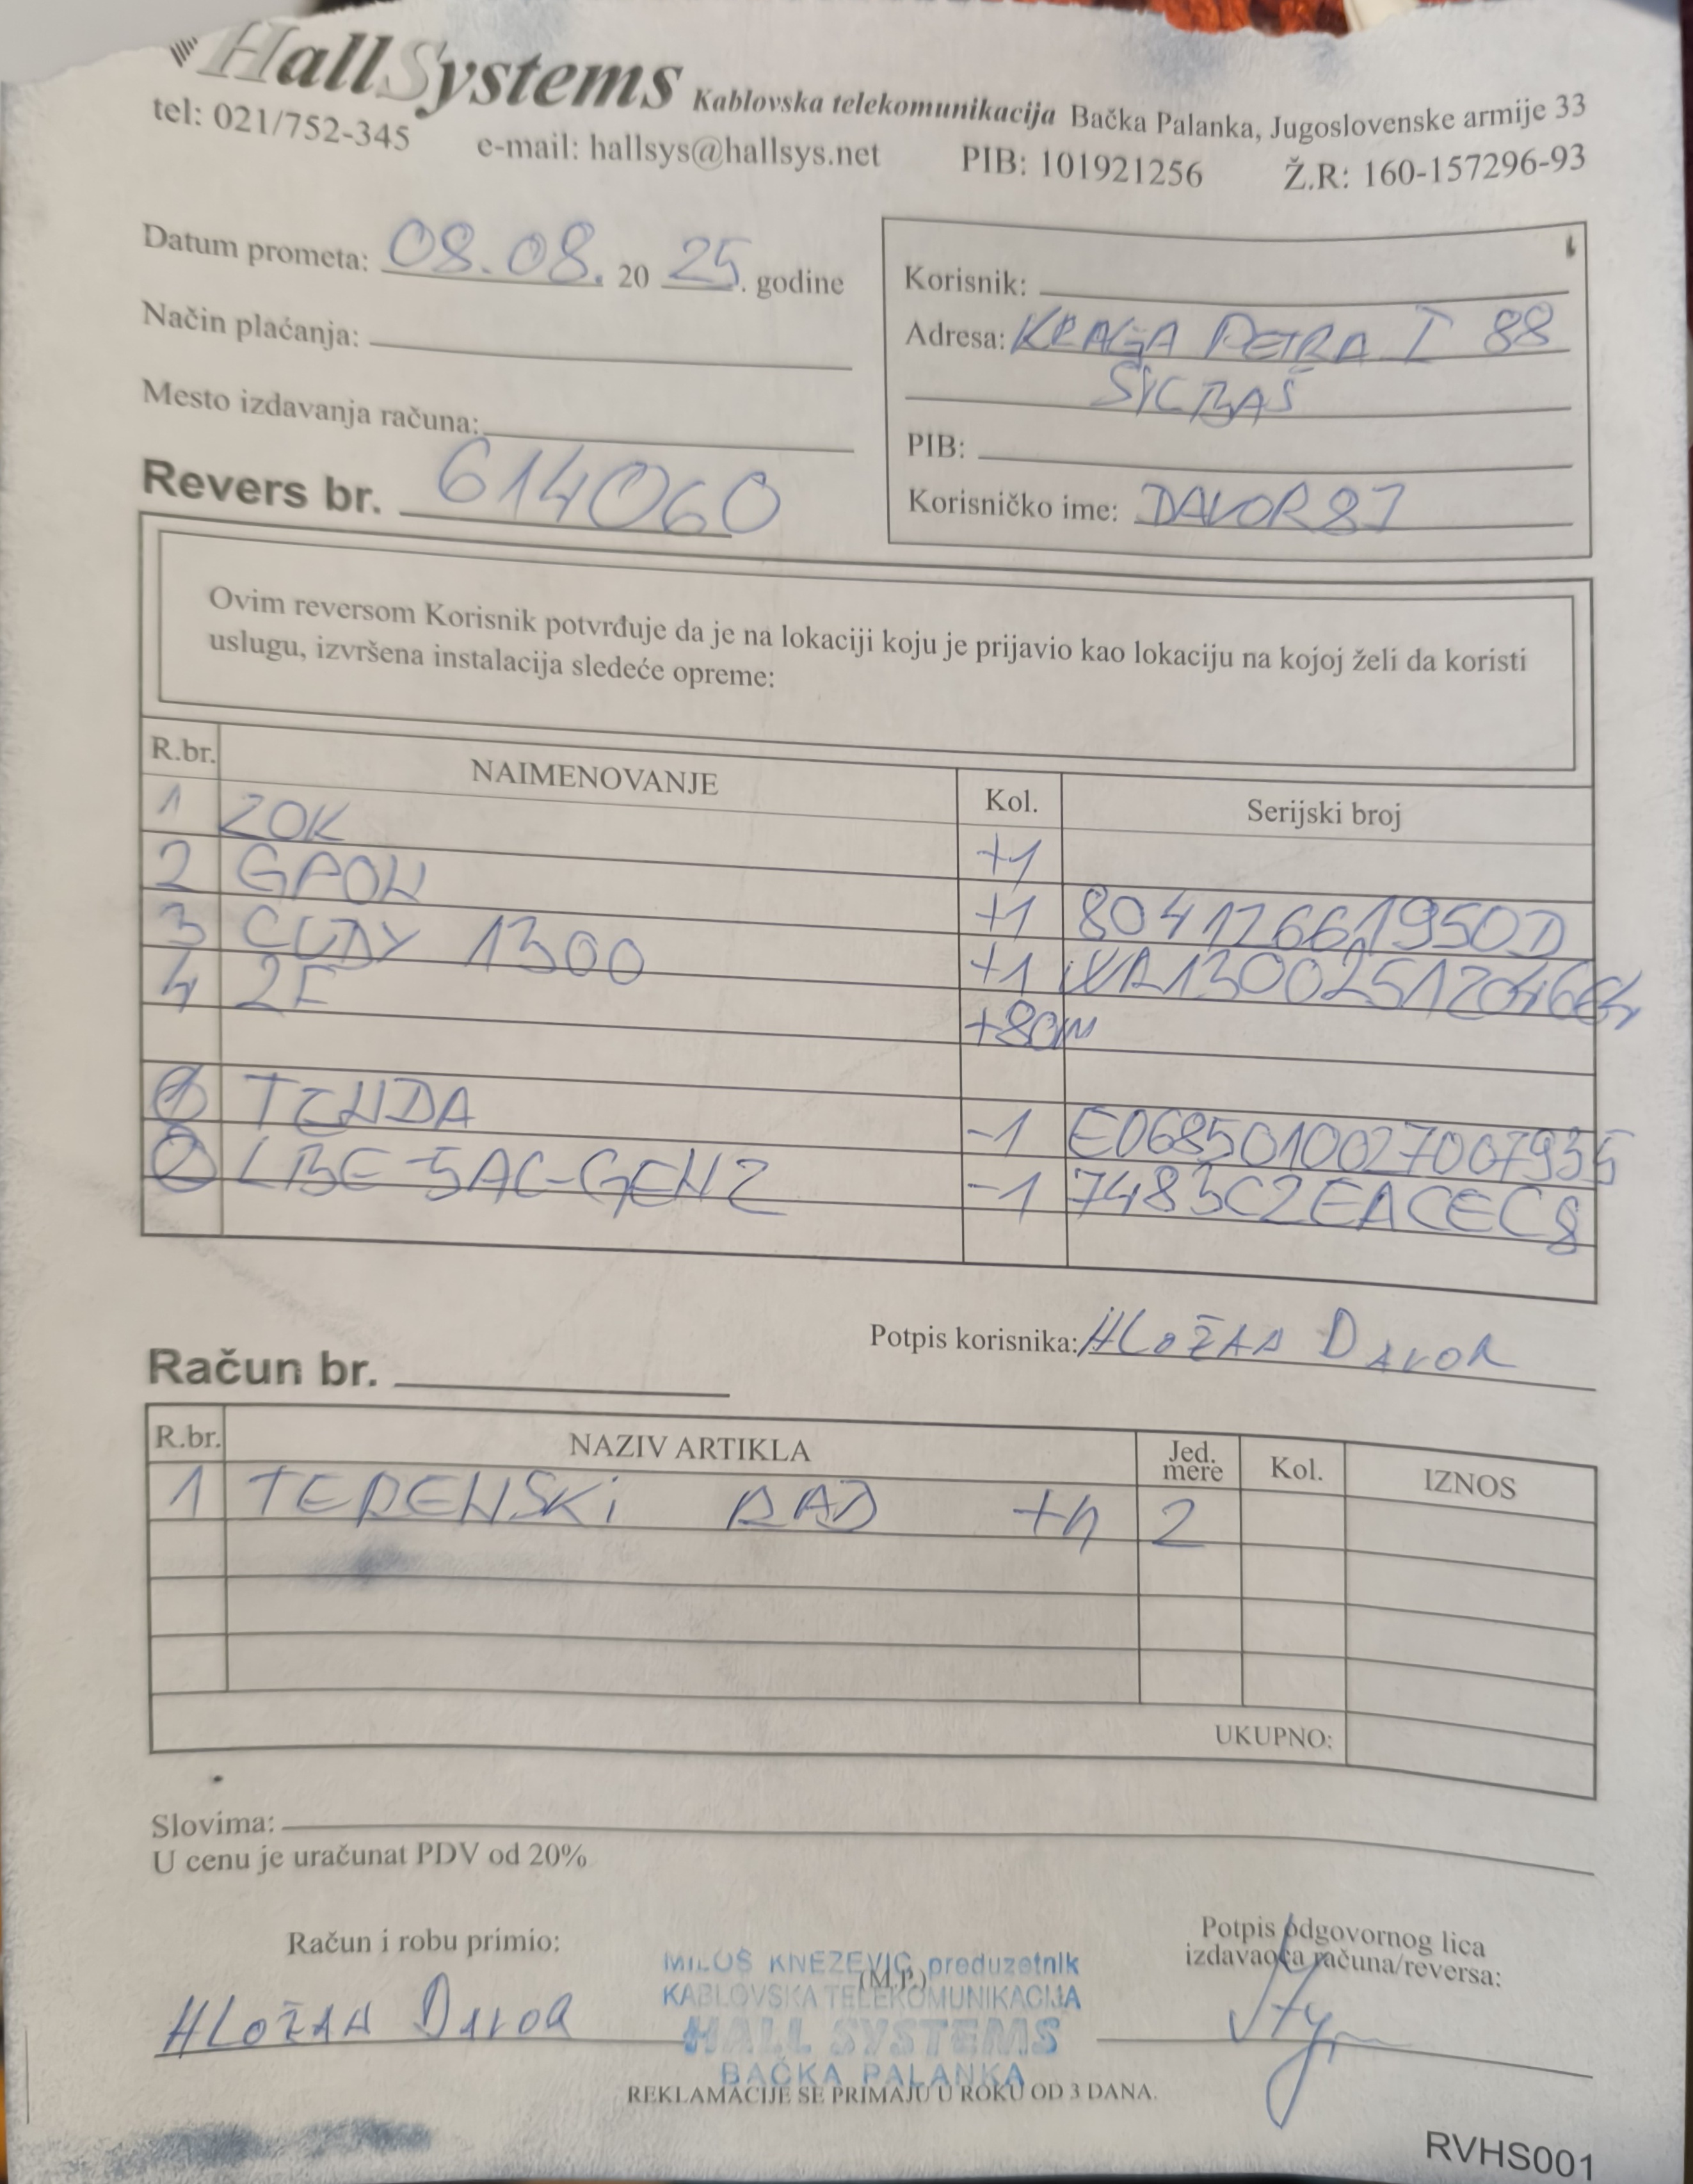 HallSystems Kablovska telekomunikacija Bačka Palanka, Jugoslovenske armije 33
tel: 021/752-345 e-mail: hallsys@hallsys.net PIB: 101921256 Ž.R: 160-157296-93
Datum prometa: 08.08. 20 25. godine
Način plaćanja:
Mesto izdavanja računa:
Revers br. 614060
Korisnik:
Adresa: KRALJA PETRA I 88
SILBAŠ
PIB:
Korisničko ime: DAVOR81
Ovim reversom Korisnik potvrđuje da je na lokaciji koju je prijavio kao lokaciju na kojoj želi da koristi
uslugu, izvršena instalacija sledeće opreme:
R.br. NAIMENOVANJE Kol. Serijski broj
1 ZOK +1
2 GPON +1 80412661950D
3 CUDY 1300 +1
4 2F +80m
1 TENDA -1 E0685010027007935
2 LBE-5AC-GEN2 -1 7483C2EACEC8
Potpis korisnika: HLOŽAN DAVOR
Račun br.
R.br. NAZIV ARTIKLA Jed. mere Kol. IZNOS
1 TERENSKI RAD +h 2
UKUPNO:
Slovima:
U cenu je uračunat PDV od 20%
Račun i robu primio:
HLOŽAN DAVOR
MILOŠ KNEŽEVIĆ preduzetnik
(M.P.)
KABLOVSKA TELEKOMUNIKACIJA
HALL SYSTEMS
BAČKA PALANKA
Potpis odgovornog lica
izdavaoca računa/reversa:
REKLAMACIJE SE PRIMAJU U ROKU OD 3 DANA.
RVHS001